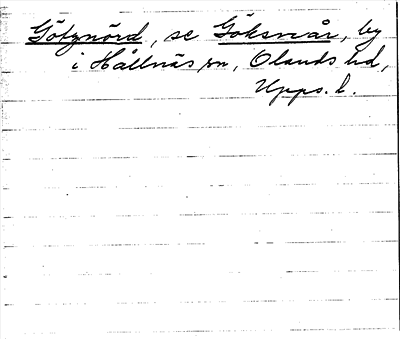 Götznörd, se Göksnåår, by
i Hållnäs sn, Olands hd,
Upps. l.